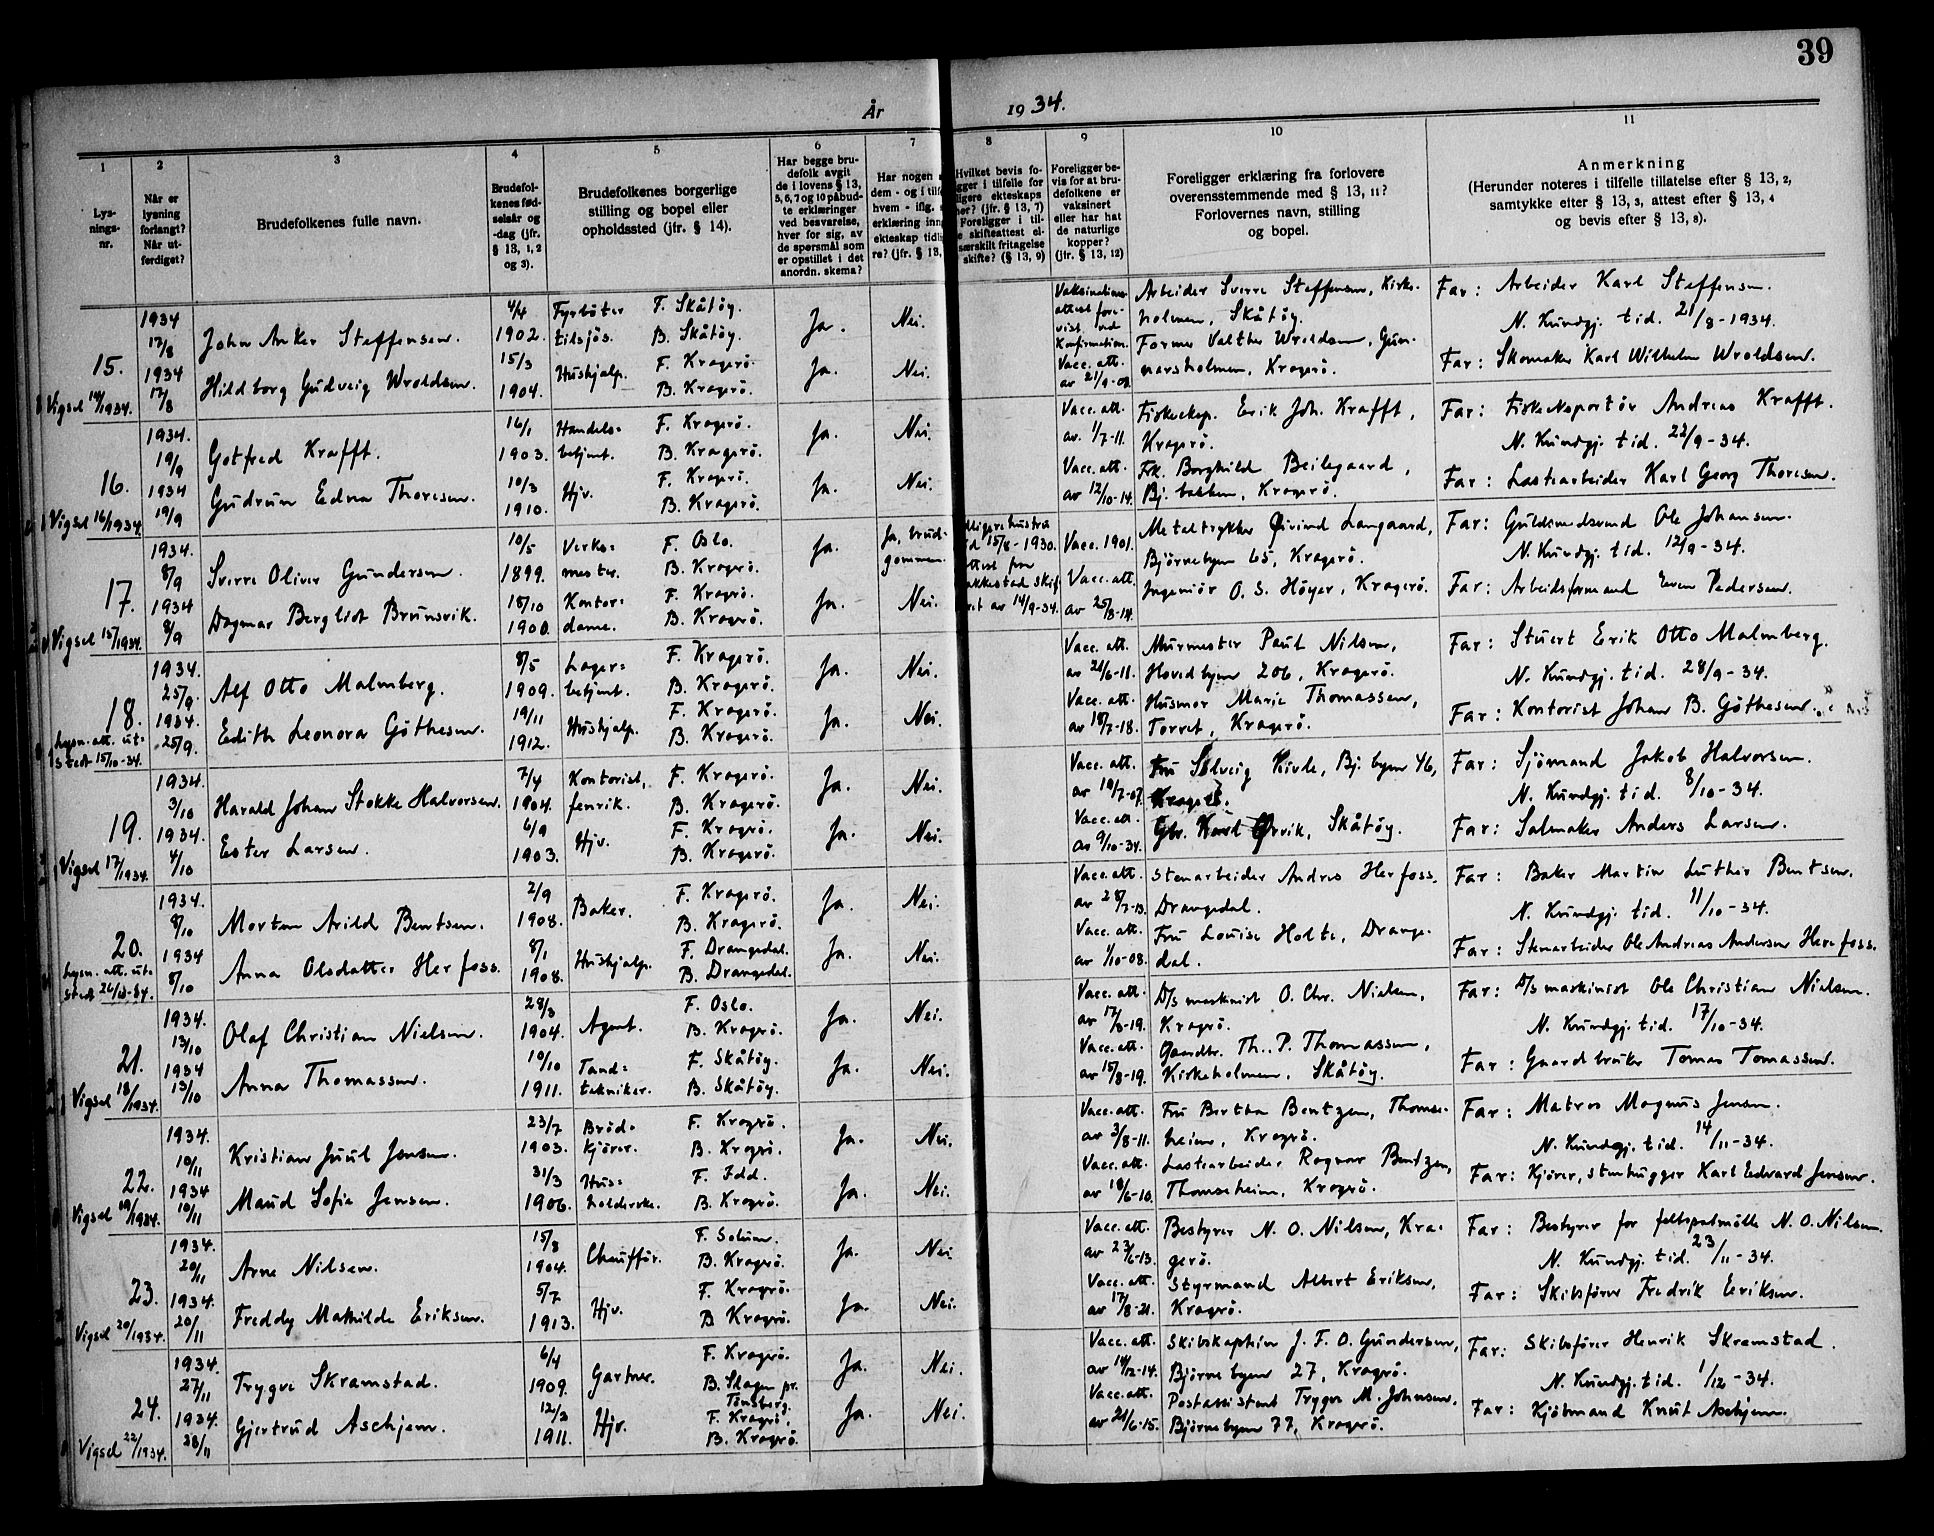 39
År 1934.
1
2
3
4
5
6
7
8
9
10
11
Lys-
nings-
nr.
Når er
lysning
forlangt?
Når ut-
ferdiget?
Brudefolkenes fulle navn.
Brudefol-
kenes fød-
selsår og
-dag (jfr.
§ 13, 1, 2
og 3).
Brudefolkenes borgerlige
stilling og bopel eller
opholdssted (jfr. § 14).
Har begge bru-
defolk avgit
de i lovens § 13,
5, 6, 7 og 10 påbud-
te erklæringer
ved besvarelse,
hver for sig, av
de spørsmål som
er opstillet i det
anordn. skema?
Har nogen
dem - og i tilf
hvem - iflg.
erklæring inn
ekteskap tidl
re? (jfr. § 13,
Hvilket bevis fo-
gger i tilfelle for
ligere ekteskaps
her? (jfr. § 13, 7)
Foreligger i til-
e skifteattest el-
særskilt fritagelse
skifte? (§ 13, 9)
Foreligger be-
vis for at bru-
defolkene er
vaksinert
eller har hat
de naturlige
kopper?
(jfr. § 13, 12)
Foreligger erklæring fra forlovere
overensstemmende med § 13, 11?
Forlovernes navn, stilling
og bopel.
Anmerkning
(Herunder noteres i tilfelle tillatelse efter § 13, 2,
samtykke efter § 13, 3, attest efter § 13, 4
og bevis efter § 13, 8).
15.
Vigsel 14/1934.
1934 17/8 John Anker Steffensen. 4/4 1902. Fyrbøter tilsjøs. F. Skåtøy. B. Skåtøy. Ja. Nei.
Vaksinations-
attest fore-
vist ved
Konfirmation.
Arbeider Sverre Steffensen, Kirke-
holmen, Skåtøy.
Far: Arbeider Karl Steffensen.
N. Kundgj. tid. 21/8-1934.
1934 17/8 Hildborg Gudveig Wroldsen. 15/3 1904. Hushjelp. F. Kragerø. B. Kragerø. Ja. Nei.
Vacc. att.
av 21/9-08
Former Valther Wroldsen, Gun-
narsholmen, Kragerø.
Far: Skomaker Karl Wilhelm Wroldsen.
16.
Vigsel 16/1934.
1934. 19/9 Gotfred Krafft. 16/1 1903. Handels-
betjent. F. Kragerø. B. Kragerø. Ja. Nei.
Vacc. att.
av 1/7-11.
Fiskeeksp. Erik Joh. Krafft,
Kragerø.
Far: Fiskeeksportør Andreas Krafft.
N. Kundgj. tid. 22/9-34.
1934 19/9 Gudrun Edna Thoresen. 10/3 1910. Hjv. F. Kragerø. B. Kragerø. Ja. Nei.
Vacc. att.
av 12/10-14.
Frk. Borghild Beilegaard,
Bj. bakken, Kragerø.
Far: Lastearbeider Karl Georg Thoresen.
17.
Vigsel 15/1934.
1934. 8/9 Sverre Oliver Gundersen. 10/5 1899. Verks-
mester. F. Oslo. B. Kragerø. Ja. Ja, brud-
gommen.
ligere hustru
d 15/8-1930.
ttest fra
akkestad skif
ret av 14/9-34.
Vacc. 1901.
Metaltrykker Øivind Langaard,
Bjørnebyen 65, Kragerø.
Far: Guldsmedsvend Ole Johansen.
N. Kundgj. tid. 12/9-34.
1934 8/9 Dagmar Bergliot Brunsvik. 18/10 1900. Kontor-
dame. F. Kragerø. B. Kragerø. Ja. Nei.
Vacc. att.
av 25/8-14.
Ingeniør O. S. Høyer, Kragerø.
Far: Arbeidsformand Even Pedersen.
18.
Lysn. att. ut-
stedt 15/10-34.
1934. 25/9. Alf Otto Malmberg. 8/5 1909. Lager-
betjent. F. Kragerø. B. Kragerø. Ja. Nei.
Vacc. att.
av 21/6-11.
Murmester Paul Nilsen,
Hovedbyen 206, Kragerø.
Far: Stuert Erik Otto Malmberg.
N. Kundgj. tid. 28/9-34.
1934. 25/9. Edith Leonora Gøthesen. 19/11 1912. Hushjelp. F. Kragerø. B. Kragerø. Ja. Nei.
Vacc. att.
av 18/7-18.
Husmor Marie Thomassen,
Torvet, Kragerø.
Far: Kontorist Johan B. Gøthesen.
19.
Vigsel 17/1934.
1934. 3/10 Harald Johan Stokke Halvorsen. 7/4 1904. Kontorist,
fenrik. F. Kragerø. B. Kragerø. Ja. Nei.
Vacc. att.
av 10/7-07.
Fru Solveig Kivle, Bj. byen 46,
Kragerø.
Far: Sjømand Jakob Halvorsen.
N. Kundgj. tid. 8/10-34.
1934. 4/10 Ester Larsen. 6/9 1903. Hjv. F. Kragerø. B. Kragerø. Ja. Nei.
Vacc. att.
av 9/10-34.
Gbr. Karl Ørvik, Skåtøy.
Far: Salmaker Anders Larsen.
20.
Lysn. att. ut-
stedt 26/10-34.
1934. 8/10 Morten Arild Bentsen. 2/9 1908. Baker. F. Kragerø. B. Kragerø. Ja. Nei.
Vacc. att.
av 28/7-13.
Stenarbeider Andreas Herfoss.
Drangedal.
Far: Baker Martin Luther Bentsen.
N. Kundgj. tid. 11/10-34.
1934 8/10 Anna Olsdatter Herfoss. 8/1 1908. Hushjelp. F. Drangedal. B. Drangedal. Ja. Nei.
Vacc. att.
av 1/10-08.
Fru Louise Holte, Drange-
dal.
Far: Stenarbeider Ole Andreas Andersen Herefoss.
21.
Vigsel 18/1934.
1934. 13/10 Olaf Christian Nielsen. 28/3 1904. Agent. F. Oslo. B. Kragerø. Ja. Nei.
Vacc. att.
av 17/8-19.
D/s maskinist O. Chr. Nielsen,
Kragerø.
Far: D/s maskinist Ole Christian Nielsen.
N. Kundgj. tid. 17/10-34.
1934 13/10 Anna Thomassen. 10/10 1911. Tand-
tekniker. F. Skåtøy. B. Skåtøy. Ja. Nei.
Vacc. att.
av 15/8-19.
Gaardbr. Th. P. Thomassen,
Kirkeholmen, Skåtøy.
Far: Gaardbruker Tomas Tomassen.
22.
Vigsel 19/1934.
1934. 10/11 Kristian Juul Jensen. 23/7 1903. Brød-
kjører. F. Kragerø. B. Kragerø. Ja. Nei.
Vacc. att.
av 3/8-11.
Fru Bertha Bentzen, Thomse-
heien, Kragerø.
Far: Matros Magnus Jensen.
N. Kundgj. tid. 14/11-34.
1934 10/11 Maud Sofie Jensen. 31/3 1906. Hus-
holderske. F. Idd. B. Kragerø. Ja. Nei.
Vacc. att.
av 18/6-10.
Lastearbeider Ragnar Bentzen,
Thomseheien, Kragerø.
Far: Kjører, stenhugger Karl Edvard Jensen.
23.
Vigsel 20/1934.
1934. 20/11 Arne Nilsen. 15/8 1904. Chauffør. F. Solum. B. Kragerø. Ja. Nei
Vacc. att.
av 23/6-13.
Bestyrer N. O. Nilsen, Kra-
gerø.
Far: Bestyrer for feltspatmølle N. O. Nilsen.
N. Kundgj. tid. 23/11-34.
1934. 20/11 Freddy Mathilde Eriksen. 5/7 1913. Hjv. F. Kragerø. B Kragerø. Ja. Nei.
Vacc. att.
av 17/8-21.
Styrmand Albert Eriksen,
Kragerø.
Far: Skibsfører Fredrik Eriksen.
24.
Vigsel 22/1934.
1934. 27/11 Trygve Skramstad. 6/4 1909. Gartner. F. Kragerø. B. Skagen pr.
Tønsberg. Ja. Nei.
Vacc. att.
av 14/12-14.
Skibskaptein J. F. O. Gundersen,
Bjørnebyen 27, Kragerø.
Far: Skibsfører Henrik Skramstad.
N. Kundgj. tid. 1/12-34.
1934. 28/11 Gjertrud Aschjem. 12/3 1911. Hjv. F. Kragerø. B. Kragerø. Ja. Nei.
Vacc. att.
av 21/6-15.
Postassistent Trygve M. Johnsen,
Bjørnebyen 77, Kragerø.
Far: Kjøbmand Knut Aschjem.